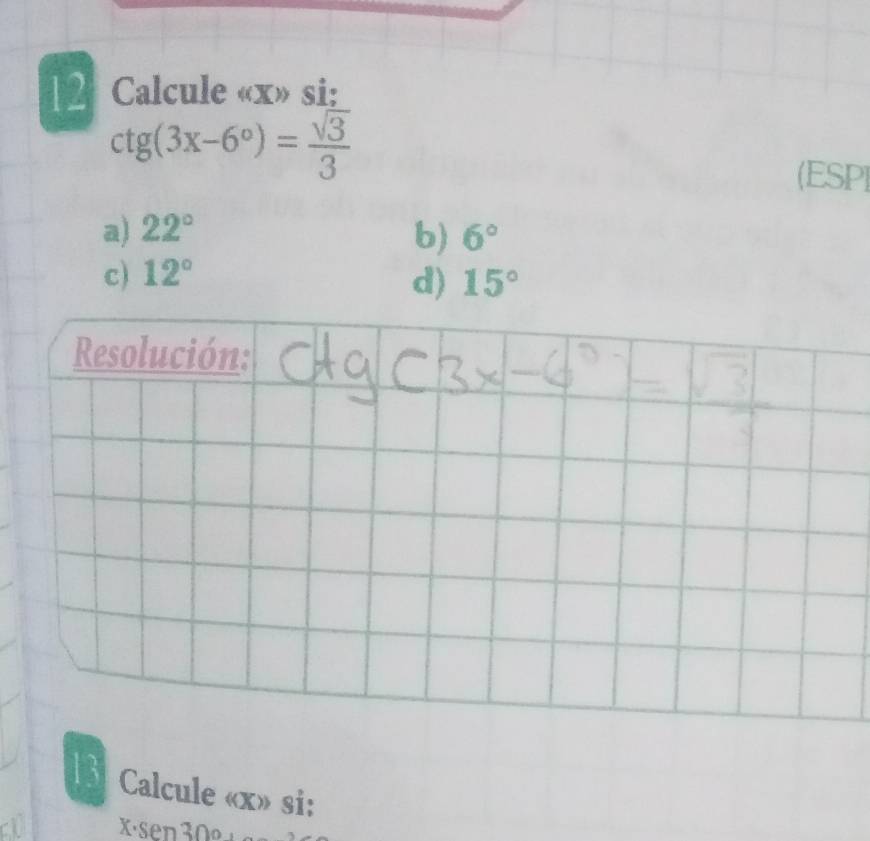 12 Calcule «x» si:
ctg(3x-6°) = √3/3
(ESP
a) 22° b) 6°
c) 12° d) 15°
Resolución: Ctg (3x-6°) = √3/3
13 Calcule «x» si:
x·sen30°